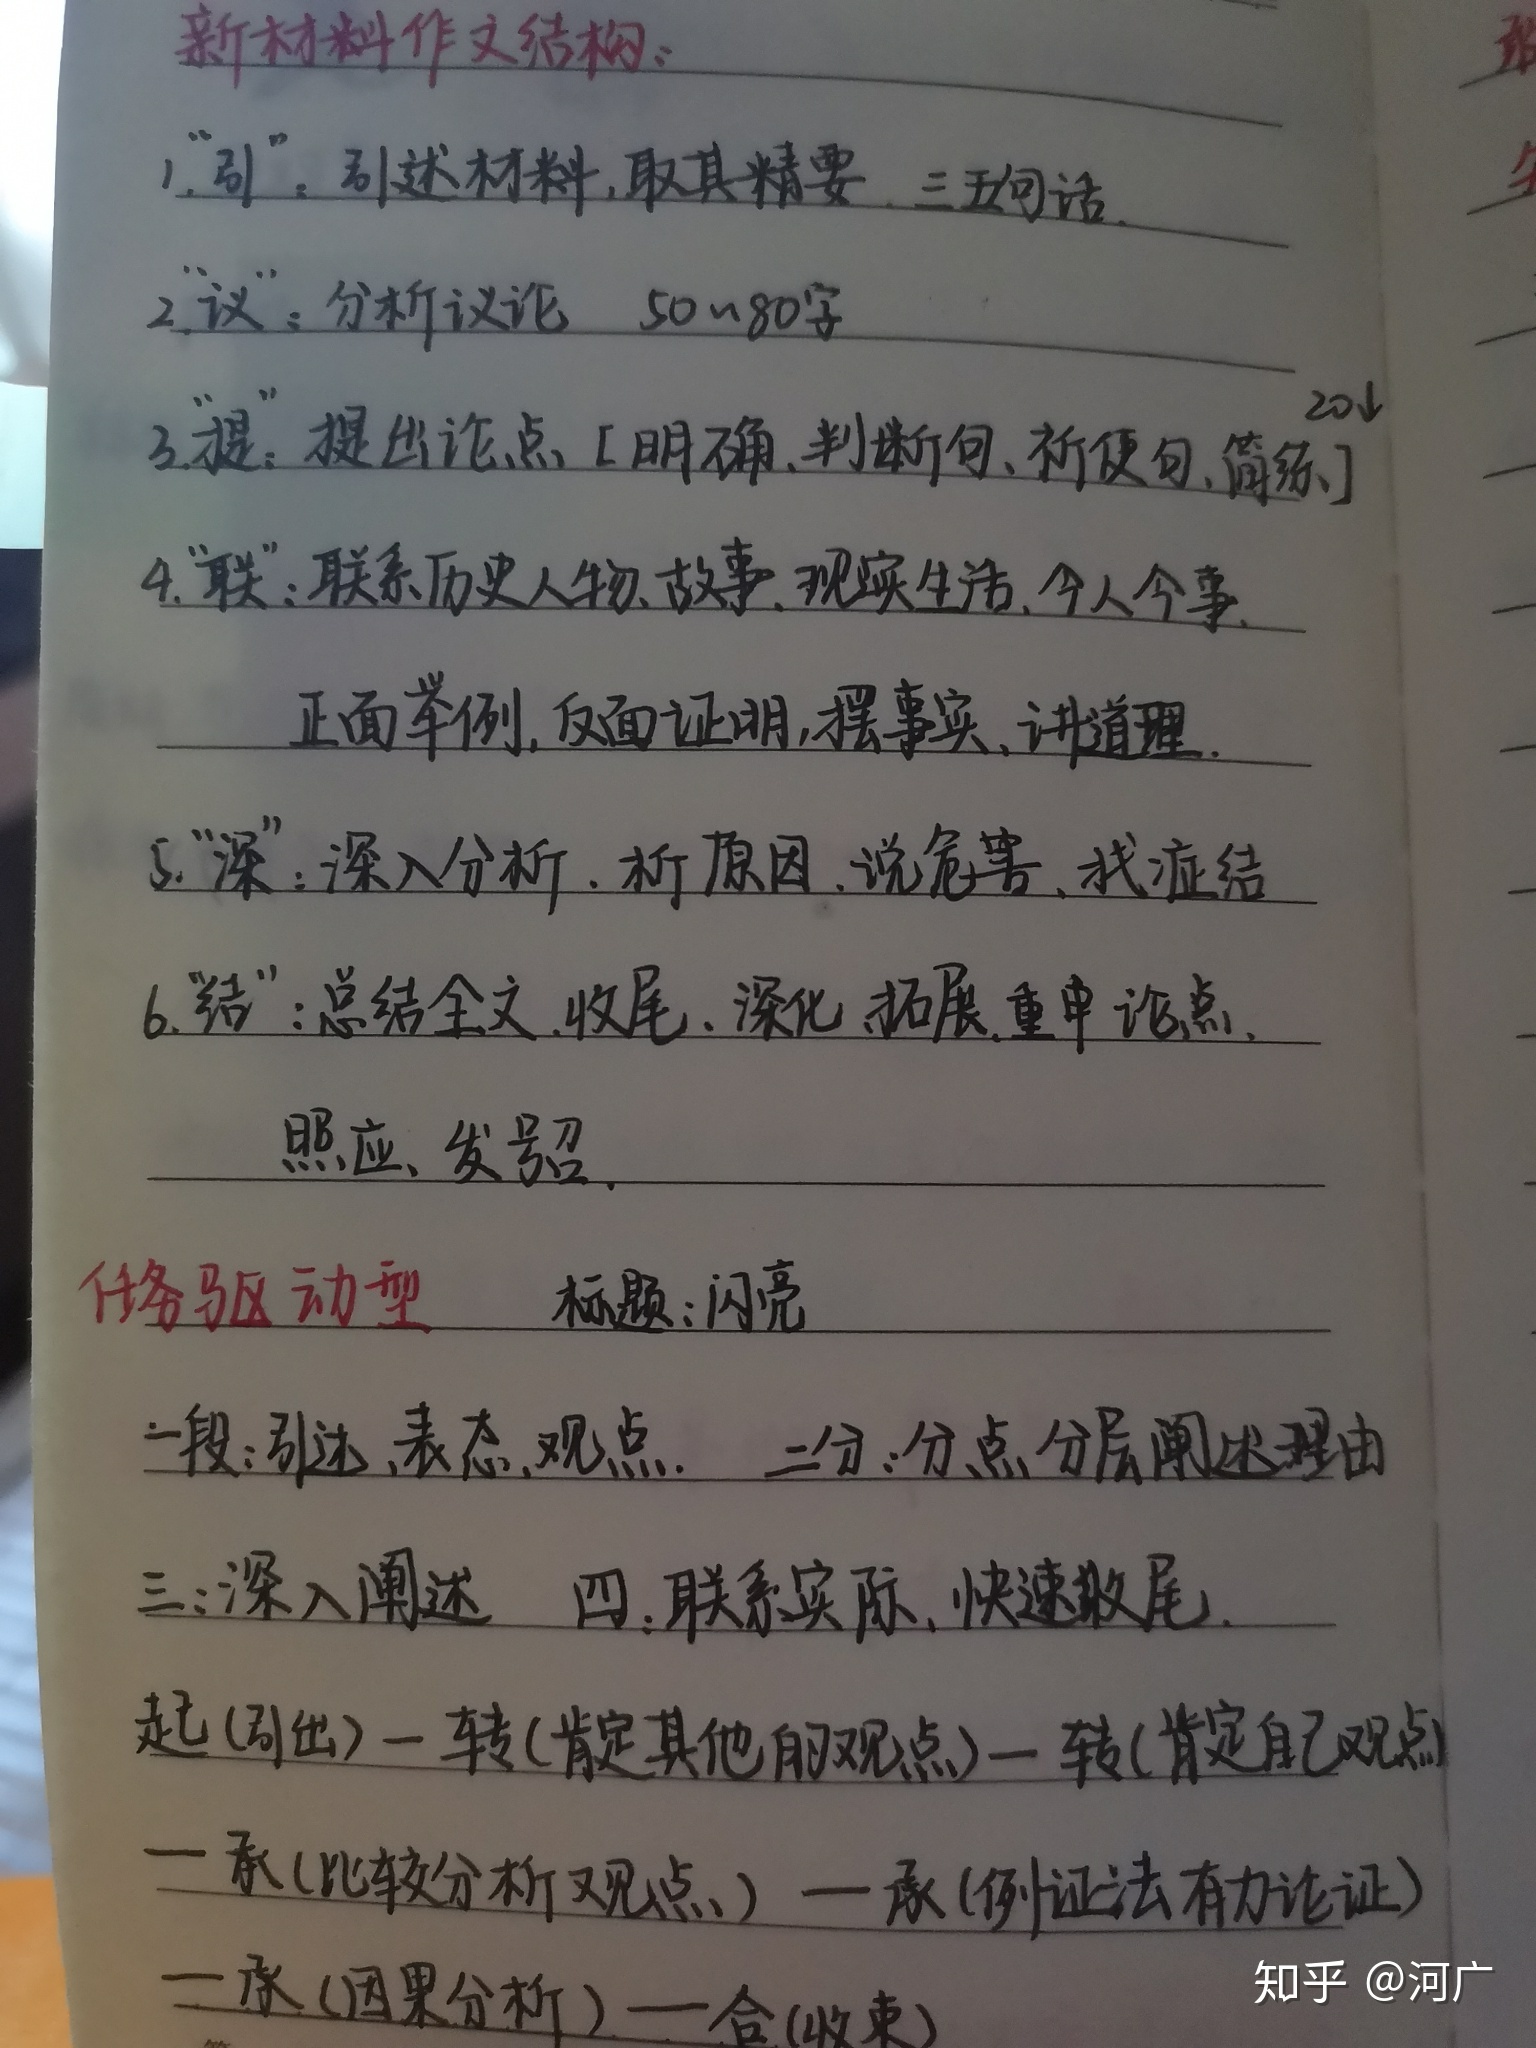 新材料作文结构：
1."引"：引述材料，取其精要．三五句话．
2."议"：分析议论 50~80字
20↓
3."提"：提出论点［明确、判断句、祈使句、简练］
4."联"：联系历史人物、故事、现实生活、今人今事、
正面举例，反面证明，摆事实、讲道理．
5."深"：深入分析．析原因、说危害、找症结
6."结"：总结全文、收尾、深化、拓展、重申论点、
照应、发号召．
任务驱动型 标题：闪亮
一段：引述、表态、观点． 二分：分点分层阐述理由
三：深入阐述 四：联系实际、快速收尾．
起（引出）—转（肯定其他的观点）—转（肯定自己观点）
—承（比较分析观点、）—承（例证法有力论证）
—承（因果分析）—合（收束）
知乎 @河广